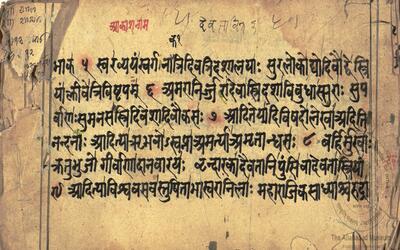 आकाशनाम
भाक् ५ स्वरव्ययंस्वर्गनाकत्रिदिवत्रिदशालयाः सुरलोकोद्योदिवौद्वेस्त्रि
यांक्लीबेत्रिविष्टपम् ६ अमरानिर्जरादेवास्त्रिदशाविबुधास्सुराः सुप
र्वाणःसुमनसस्त्रिदिवेशादिवौकसः ७ आदितेयादिविषदोलेखाअदिति
नन्दनाः आदित्याऋभवोऽस्वप्नाअमर्त्याअमृतान्धसः ८ बर्हिर्मुखाः
क्रतुभुजोगीर्वाणादानवारयः वृन्दारकादैवतानिपुंसिवादेवतास्त्रियां
९ आदित्याविश्ववसवस्तुषिताभास्वरानिलाः महाराजिकसाध्याश्चरुद्रा